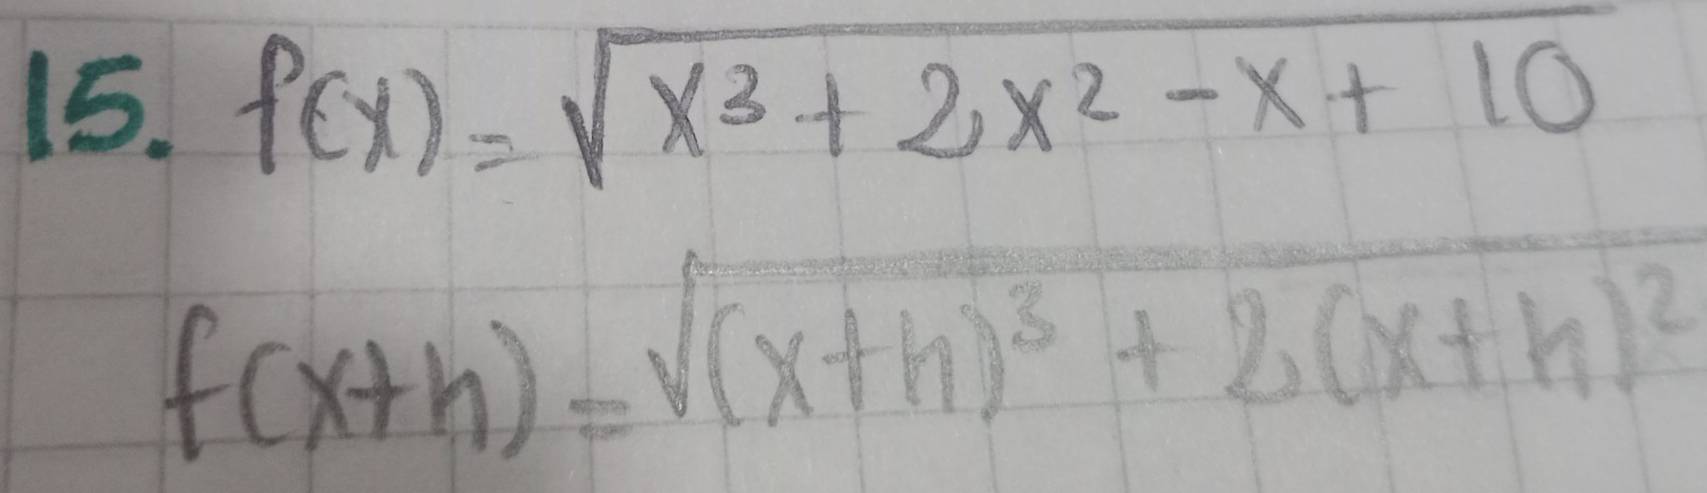 15. f(x) = √(x³ + 2x² - x + 10)
f(x+h) = √((x+h)³ + 2(x+h)²